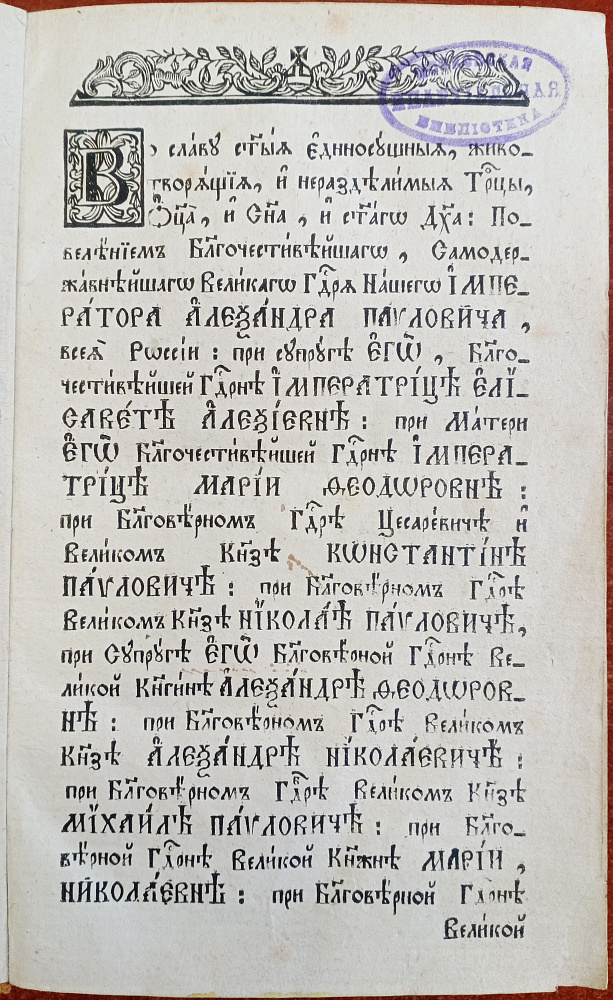 ЕВСКАЯ
БИБЛІОТЕКА
Во славу ст҃ы́ѧ є҆диносꙋ́щныѧ, живо-
творѧ́щїѧ, и҆ нераздѣ́лимыѧ Трⷪ҇цы,
Ѻ҆ц҃а̀, и҆ Сн҃а, и҆ ст҃а́гѡ Дх҃а: По-
велѣ́нїемъ Бл҃гочести́вѣйшагѡ, Самодер-
жа́внѣйшагѡ Вели́кагѡ Гдⷭ҇рѧ На́шегѡ І҆МПЕ-
РА́ТОРА А҆ЛЕѮА́НДРА ПА́ѴЛОВИЧА,
всеѧ̀ Рѡссі́и: при сꙋпрꙋ́гѣ Є҆ГѠ̀, Бл҃го-
чести́вѣйшей Гдⷭ҇рнѣ І҆МПЕРАТРІ́ЦѢ Є҆ЛІ-
САВЕ́ТѢ А҆ЛЕѮІ́ЕВНѢ: при Ма́тери
Є҆ГѠ̀ Бл҃гочести́вѣйшей Гдⷭ҇рнѣ І҆МПЕРА-
ТРІ́ЦѢ МАРІ́И ѲЕОДѠРОВНѢ:
при Бл҃говѣ́рномъ Гдⷭ҇рѣ Цесаре́вичѣ и҆
Вели́комъ Кн҃зѣ КѠНСТАНТІ́НѢ
ПА́ѴЛОВИЧѢ: при Бл҃говѣ́рномъ Гдⷭ҇рѣ
Вели́комъ Кн҃зѣ НЇКОЛА́Ѣ ПА́ѴЛОВИЧѢ,
при Сꙋпрꙋ́гѣ Є҆ГѠ̀ Бл҃говѣ́рной Гдⷭ҇рнѣ Ве-
ли́кой Кн҃ги́нѣ А҆ЛЕѮА́НДРѢ ѲЕОДѠРОВ-
НѢ: при Бл҃говѣ́рномъ Гдⷭ҇рѣ Вели́комъ
Кн҃зѣ А҆ЛЕѮА́НДРѢ НІКОЛА́ЕВИЧѢ:
при Бл҃говѣ́рномъ Гдⷭ҇рѣ Вели́комъ Кн҃зѣ
МЇХАИ́ЛѢ ПА́ѴЛОВИЧѢ: при Бл҃го-
вѣ́рной Гдⷭ҇рнѣ Вели́кой Кн҃жнѣ МАРІ́И,
НИКОЛА́ЕВНѢ: при Бл҃говѣ́рной Гдⷭ҇рнѣ
Вели́кой